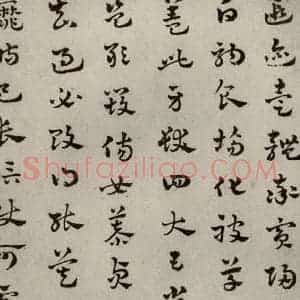 遐邇壹體率賓歸
白駒食場化被草
蓋此身髮四大五常
豈敢毀傷女慕貞
知過必改得能莫
靡恃己長信使可覆
Shufaziliao.com